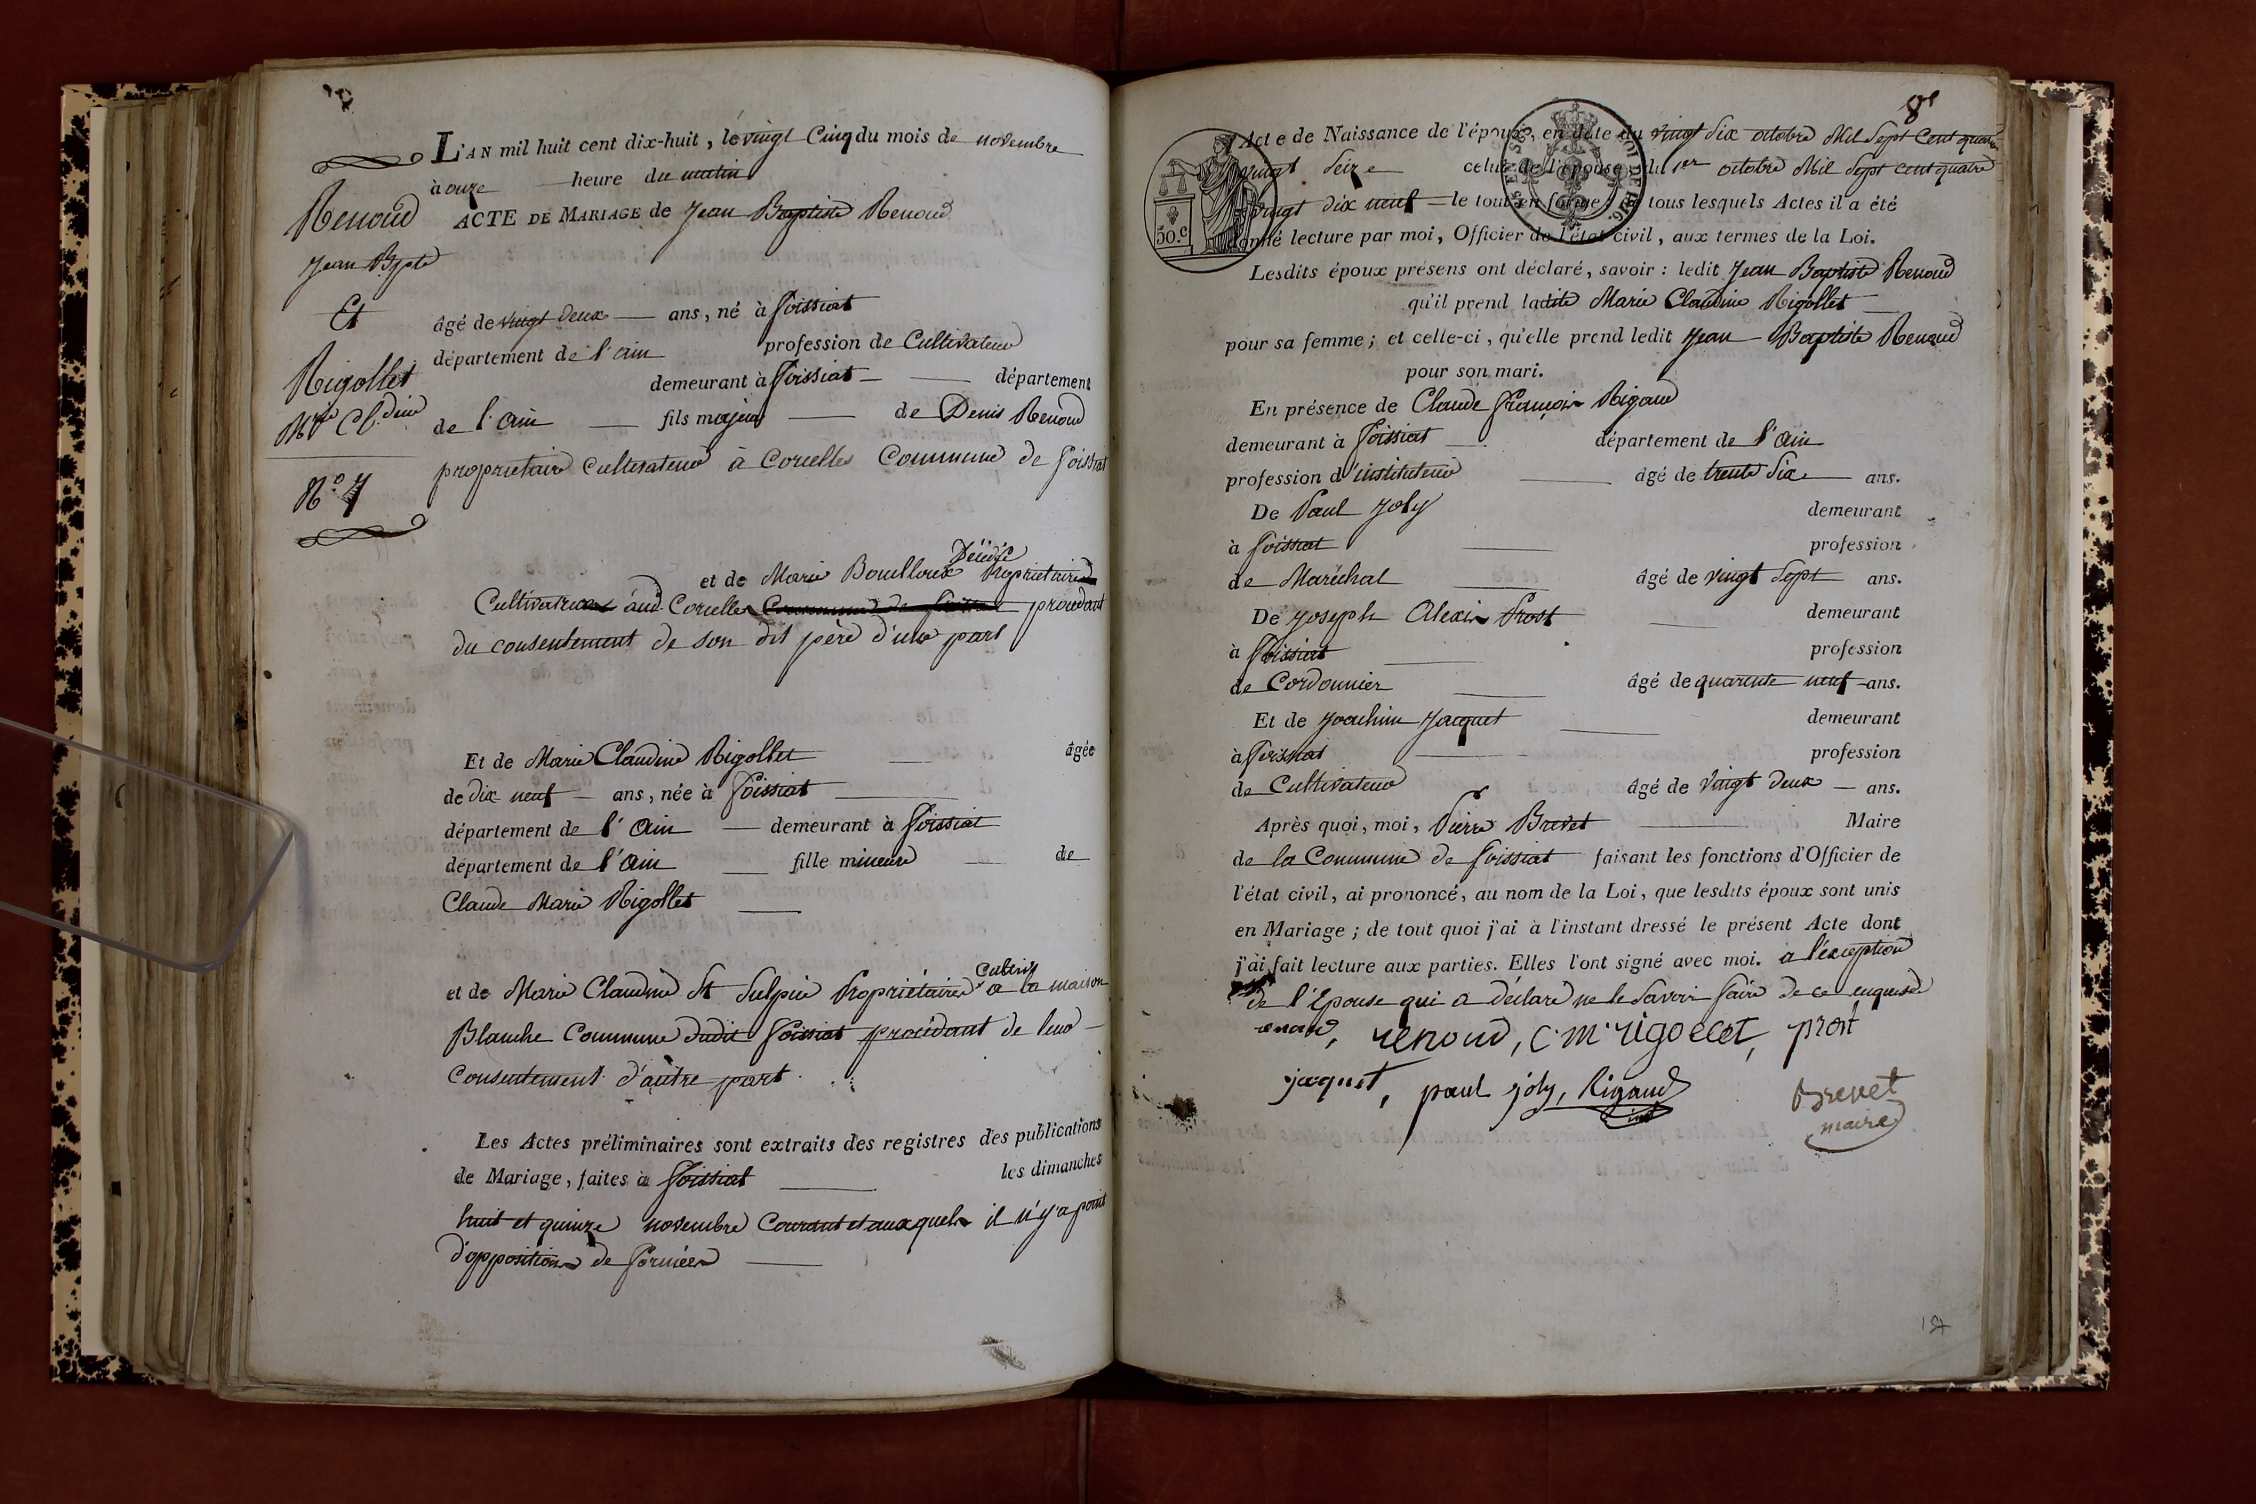 L'AN mil huit cent dix-huit, le vingt Cinq du mois de novembre
à onze heure du matin
ACTE DE MARIAGE de Jean Baptiste Renoud
Renoud
Jean Bpte
Et
Rigollet
Mie Cl.dine
N.º 7
âgé de vingt deux ans, né à foissiat
département de l'ain profession de Cultivateur
demeurant à foissiat département
de l'ain fils majeur de Denis Renoud
proprietaire cultivateur à Corcelles Commune de foissiat
Décédée
et de Marie Bouilloux Proprietaire
Cultivatrice aud. Corcelles Commune de foissiat procédant
du consentement de son dit père d'une part
Et de Marie Claudine Rigollet âgée
de dix neuf ans, née à foissiat
département de l'ain demeurant à foissiat
département de l'ain fille mineure de
Claude Marie Rigollet
Cultivrs
et de Marie Claudine St Sulpice Propriétaires a la maison
Blanche Commune dudit foissiat procédant de leur
Consentement d'autre part.
Les Actes préliminaires sont extraits des registres des publications
de Mariage, faites à foissiat les dimanches
huit et quinze novembre Courant et auxquels il n'y a point
d'oppositions de formées
8e
Acte de Naissance de l'époux, en date du vingt six octobre Mil Sept Cent quatre
vingt seize celui de l'épouse du 1er octobre Mil Sept cent quatre
vingt dix neuf le tout en forme; de tous lesquels Actes il a été
donné lecture par moi, Officier de l'état civil, aux termes de la Loi.
50.c
ROI DE
1816.
Lesdits époux présens ont déclaré, savoir: ledit Jean Baptiste Renoud
qu'il prend ladite Marie Claudine Rigollet
pour sa femme; et celle-ci, qu'elle prend ledit Jean Baptiste Renoud
pour son mari.
En présence de Claude françois Rigaud
demeurant à foissiat département de l'ain
profession d'instituteur âgé de trente six ans.
De Paul Joly demeurant
à foissiat profession
de Maréchal âgé de vingt sept ans.
De Joseph Alexis Prost demeurant
à foissiat profession
de Cordonnier âgé de quarente neuf ans.
Et de Joachim Jacquet demeurant
à foissiat profession
de Cultivateur âgé de vingt deux ans.
Après quoi, moi, Pierre Brevet Maire
de la Commune de foissiat faisant les fonctions d'Officier de
l'état civil, ai prononcé, au nom de la Loi, que lesdits époux sont unis
en Mariage; de tout quoi j'ai à l'instant dressé le présent Acte dont
j'ai fait lecture aux parties. Elles l'ont signé avec moi. a l'exception
de l'Epouse qui a déclaré ne le savoir faire de ce enquise
renoud, C. M. rigollet, prost
jacquet, paul joly, Rigaud
Brevet
maire
157